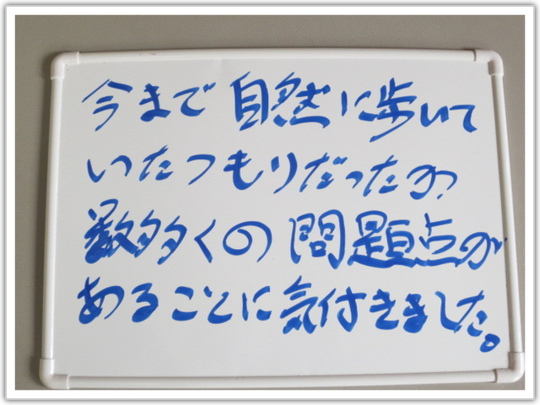 今まで自然に歩いて
いたつもりだったが
数多くの問題点が
あることに気付きました。